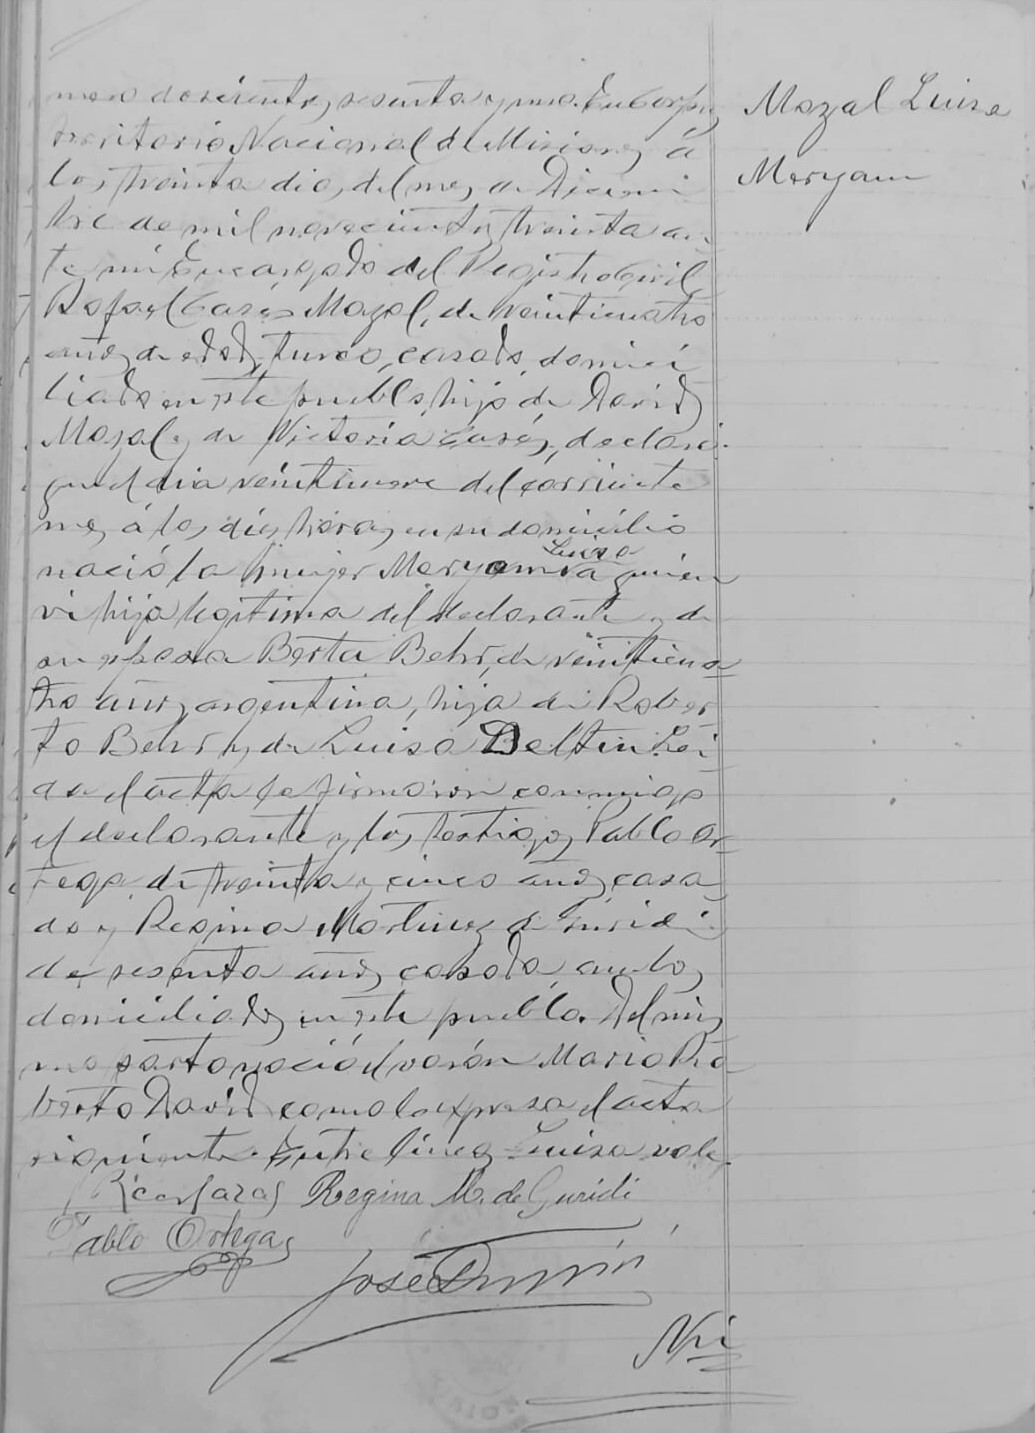 mero doscientos sesenta y uno. En Corpus
Mazal Luisa
Meryam
territorio Nacional de Misiones á
los treinta dias del mes de Diciem
bre de mil novecientos treinta an
te mi Encargado del Registro Civil,
Rafael Cases Mazal, de veinticuatro
años de edad, turco, casado, domici
liado en este pueblo, hijo de David
Mazal y de Victoria Cases, declaró:
que el dia veintinueve del corriente
mes á las diez horas en su domicilio
Luisa
nació la mujer Meryam va quien
vi hija legitima del declarante y de
su esposa Berta Behr, de veinticua
tro años, argentina, hija de Rober
to Behr y de Luisa Beltin. Leí
da el acta la firmaron conmigo
el declarante y los testigos Pablo Or
tega, de treinta y cinco años, casa
do y Regina Martinez de Guridi
de sesenta años, casada, ambos
domiciliados en este pueblo. Del mis
mo parto nació el varón Mario Ro
berto David como lo expresa el acta
siguiente. Entre lineas Luisa vale.
Regina M. de Guridi
Pablo Ortega
José